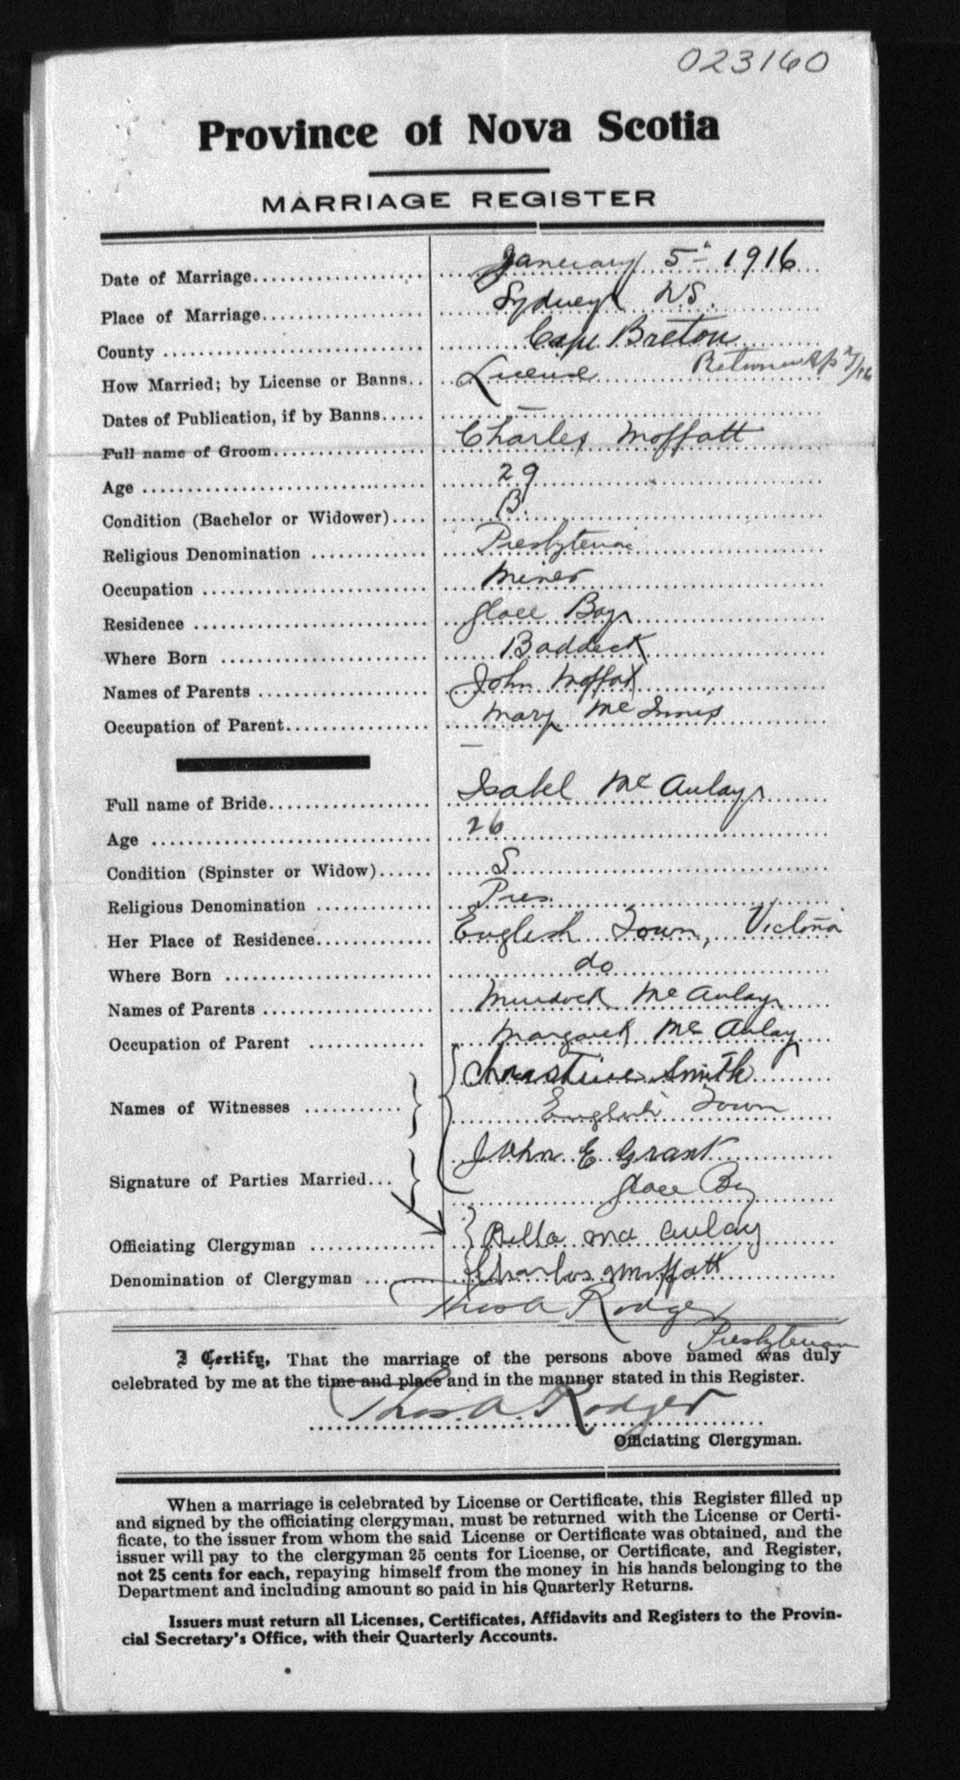 023160
Province of Nova Scotia
MARRIAGE REGISTER
Date of Marriage January 5th 1916
Place of Marriage Sydney N.S.
County Cape Breton
How Married; by License or Banns License Return
Dates of Publication, if by Banns —
Full name of Groom Charles Moffatt
Age 29
Condition (Bachelor or Widower) B.
Religious Denomination Presbyterian
Occupation Miner
Residence Glace Bay
Where Born Baddeck
Names of Parents John Moffat
Occupation of Parent Mary McInnis
—
Full name of Bride Isabel McAulay
Age 26
Condition (Spinster or Widow) S
Religious Denomination Pres.
Her Place of Residence English Town, Victoria
Where Born do
Names of Parents Murdock McAulay
Occupation of Parent Margaret McAulay
Christine Smith
Names of Witnesses English Town
John E Grant
Signature of Parties Married Glace Bay
Officiating Clergyman Bella Mc Aulay
Denomination of Clergyman Charles Moffatt
Thos A Rodger
Presbyterian
I Certify, That the marriage of the persons above named was duly
celebrated by me at the time and place and in the manner stated in this Register.
Thos. A. Rodger
Officiating Clergyman.
When a marriage is celebrated by License or Certificate, this Register filled up
and signed by the officiating clergyman, must be returned with the License or Certi-
ficate, to the issuer from whom the said License or Certificate was obtained, and the
issuer will pay to the clergyman 25 cents for License, or Certificate, and Register,
not 25 cents for each, repaying himself from the money in his hands belonging to the
Department and including amount so paid in his Quarterly Returns.
Issuers must return all Licenses, Certificates, Affidavits and Registers to the Provin-
cial Secretary's Office, with their Quarterly Accounts.